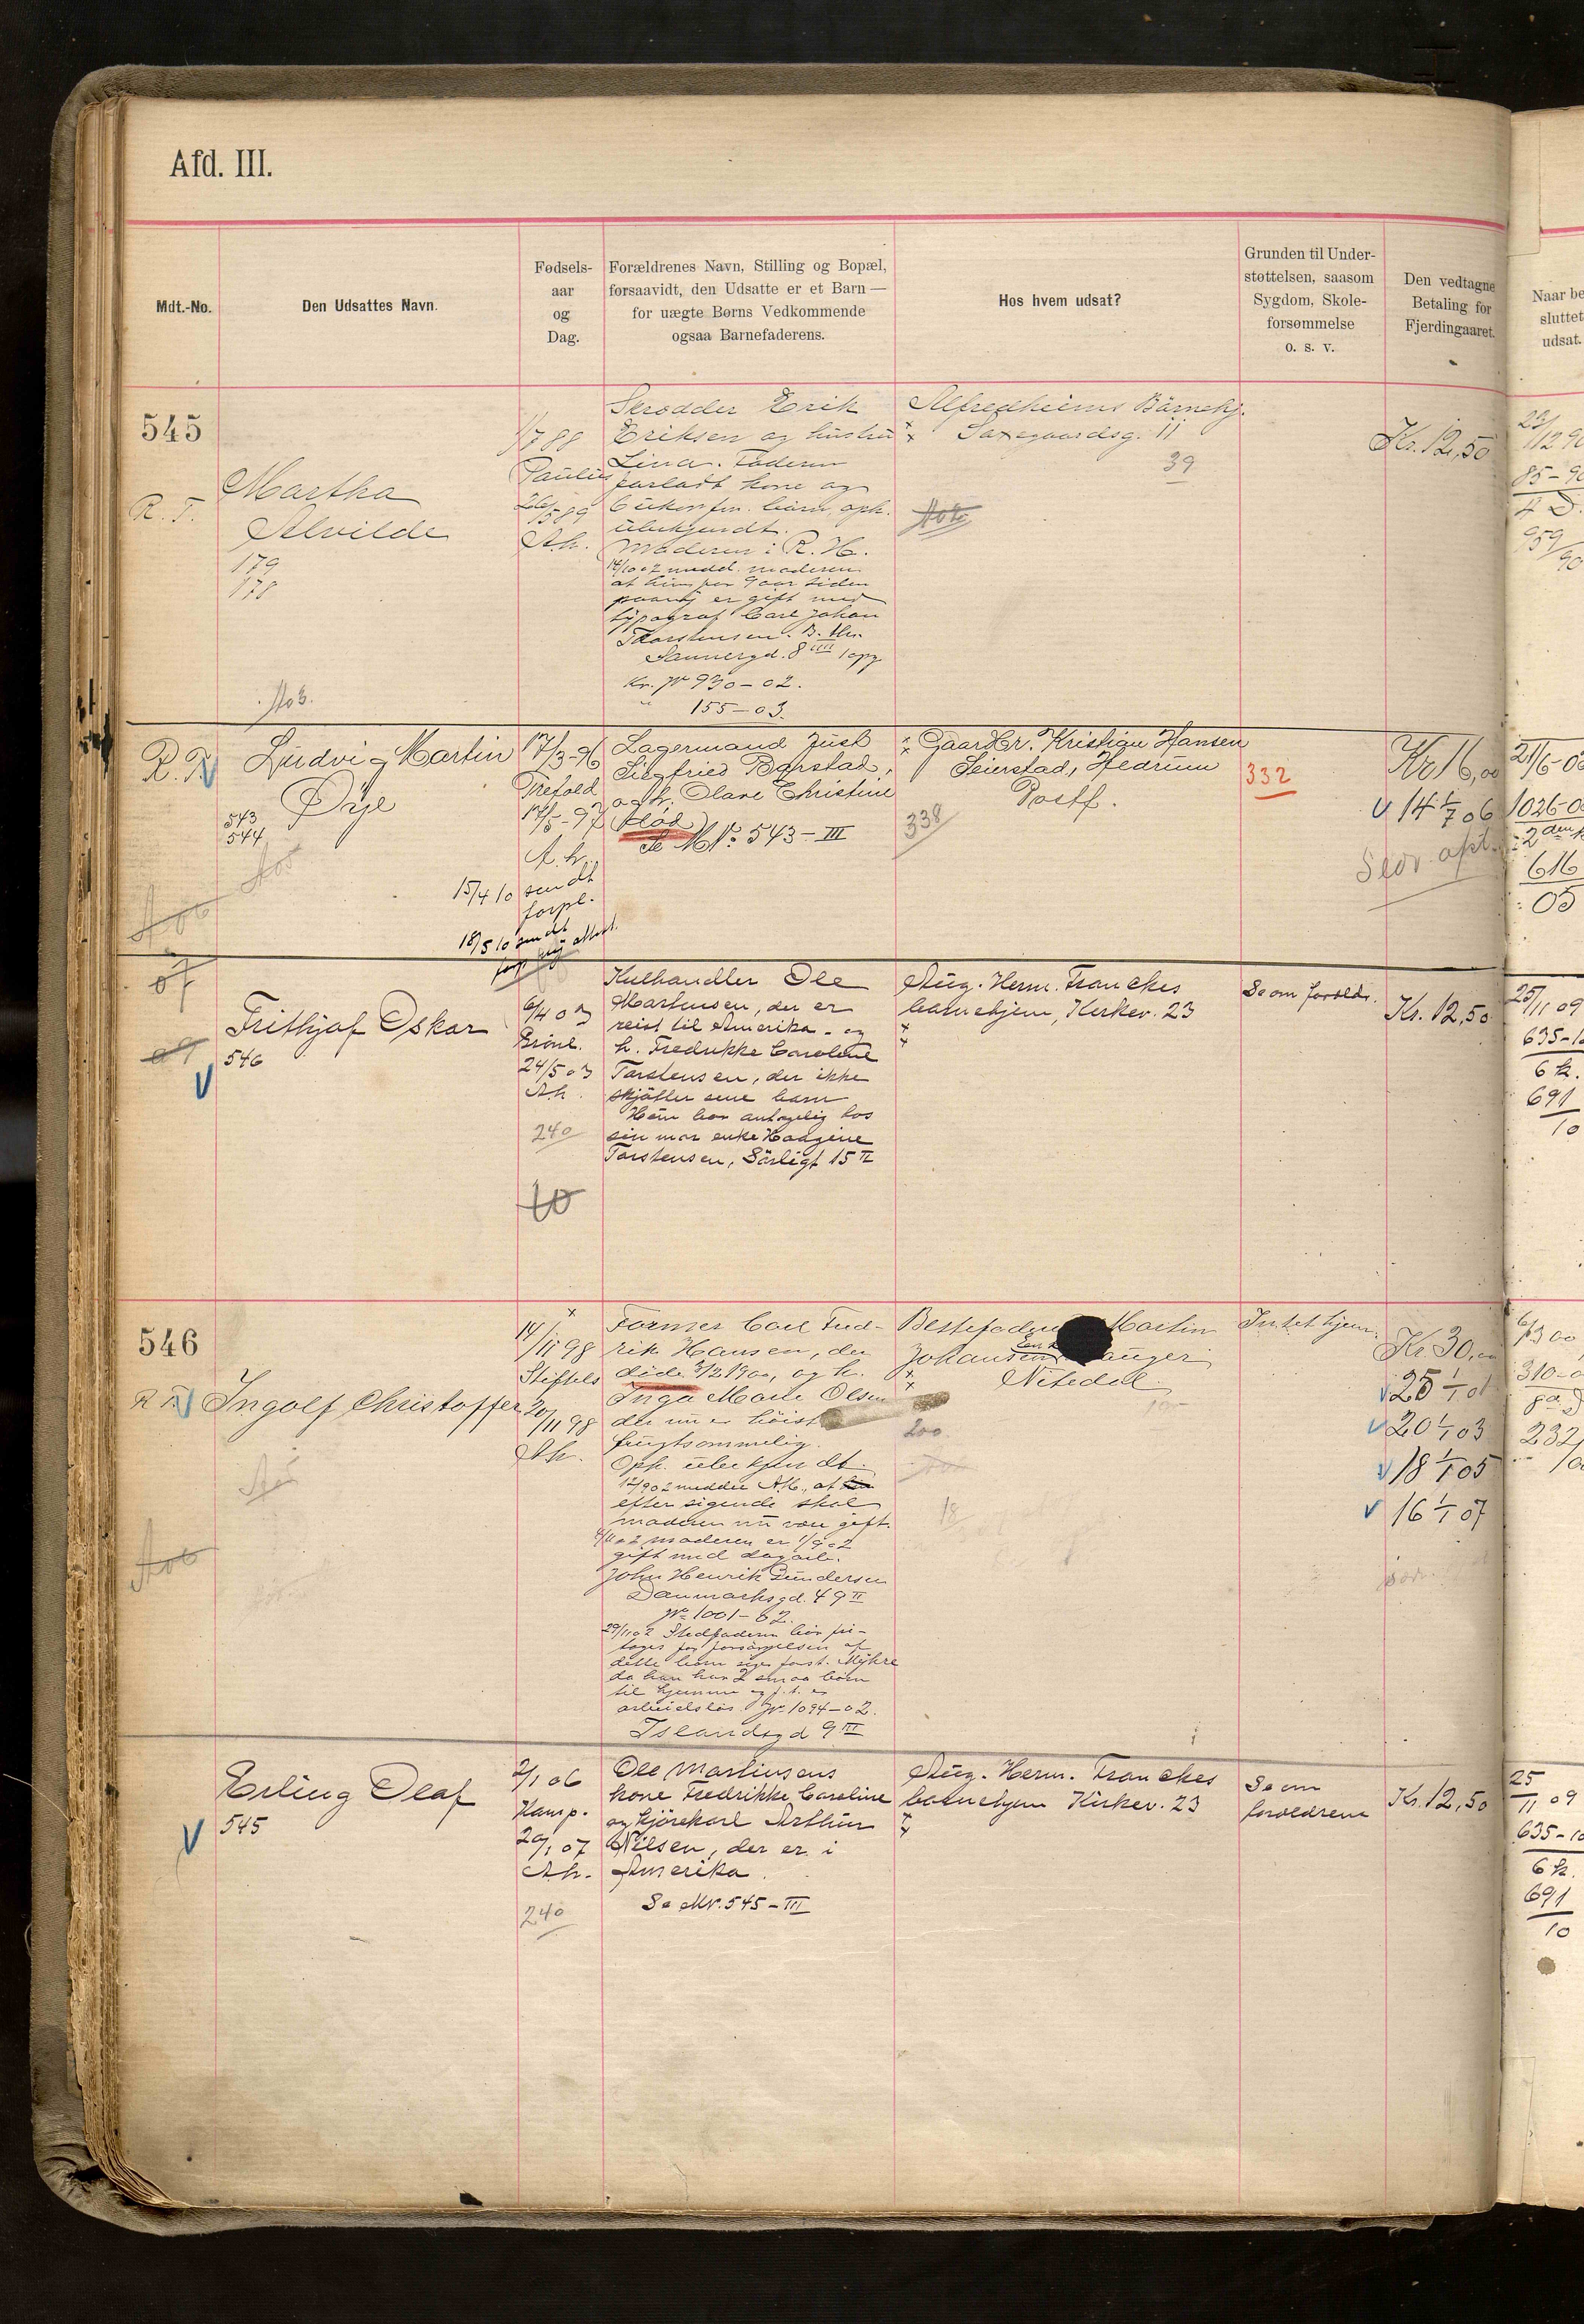 Afd. III.
Mdt.-No.
Den Udsattes Navn.
Fødsels-
aar
og
Dag.
Forældrenes Navn, Stilling og Bopæl,
forsaavidt, den Udsatte er et Barn —
for uægte Børns Vedkommende
ogsaa Barnefaderens.
Hos hvem udsat?
Grunden til Under-
støttelsen, saasom
Sygdom, Skole-
forsømmelse
o. s. v.
Den vedtagne
Betaling for
Fjerdingaaret.
Naar be
sluttet
udsat.
545
R. T.
Martha
Alvilde
179
178
1/7 88
Paulus
26/5 89
A.k.
Skrødder Erik
Eriksen og hustru
Lina. Faderen
forladt kone og
6 ukonfm. børn, oph.
ubekjendt.
Moderen i R. H.
14/10 02 medd. moderen
at hun for 9 aar siden
paany er gift med
typograf Carl Johan
Thorstensen. B. hr.
Sannergd. 8 III opg
Kr. No 930 – 02.
" 155 – 03.
Alfredheims Børnehj.
Saxegaardsg. 11
39
Kr. 12,50
85 – 90
959/90
R. T.
Ludvig Martin
Øye
543
544
17/3-96
Trefold
17/5-97
A.k.
15/4 10 sendt
forpl.
18/5 10 sendt
Lagermand Just
Siegfried Barstad,
og h. Olave Christine
(død)
Se M No 543 – III
Gaardbr. Kristian Hansen
Seierstad, Hedrum
Postf.
338
332
Kr 16,00
14 1/7 06
21/6-0
1026-0
616
05
07
09
Frithjof Oskar
546
6/4 03
Grønl.
24/5 03
A.k.
240
10
Kulhandler Ole
Martinsen, der er
reist til Amerika - og
h. Fredrikke Caroline
Torstensen, der ikke
skjøtter sine barn
Hun bor antagelig hos
sin mor enke Haagine
Torstensen, Sørligt 15 II
Aug. Herm. Franckes
barnehjem, Kirkev. 23
Se om forældr.
Kr. 12,50
25/11 09
635-10
6 k.
691
10
546
R. T.
Ingolf Christoffer
14/11 98
Stiftels
20/11 98
A.k.
Former Carl Fred-
rik Hansen, der
døde 3/2 1900, og h.
Inga Marie Olsen
der nu er høist
frugtsommelig.
Oph. ubekjendt.
12/9 02 meddeler A.K., at
efter sigende skal
moderen nu være gift.
4/11 02 moderen er 1/9 02
gift med dagarb.
John Henrik Gundersen
Danmarksgd. 49 II
No 1001 – 02.
29/11 02 Stedfaderen bør fri-
tages for forsørgelsen af
dette barn siger forst. Myhre
da han har 2 smaa børn
til hjemme og f.t. er
arbeidsløs. No 1094-02.
Islandsgd 9 III
Bestefaderen Martin
Johansen Hauger
Nitedal
200
18
Intet hjem.
Kr. 30,00
25 1/1 01
20 1/1 03
18 1/1 05
16 1/1 07
6/3 00
310-0
232/
Erling Olaf
545
2/1 06
Kamp.
20/1 07
A.k.
240
Ole Martinsens
kone Fredrikke Caroline
og kjørekarl Arthur
Nilsen, der er i
Amerika.
Se Mr. 545 – III
Aug. Herm. Franckes
barnehjem Kirkev. 23
Se om
forældrene
Kr. 12,50
25/11 09
635-10
6 k.
691
10